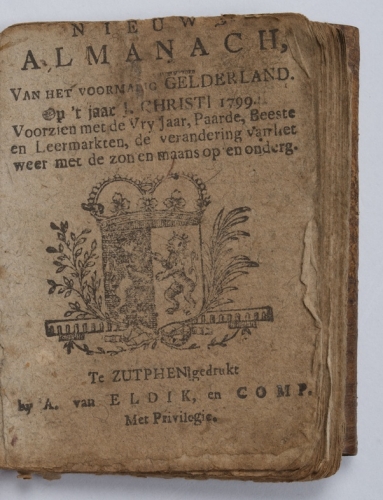 NIEUWE
ALMANACH,
VAN HET VOORMALIG GELDERLAND.
Op 't jaar J. CHRISTI 1799.
Voorzien met de Vry Jaar, Paarde, Beeste
en Leermarkten, de verandering van het
weer met de zon en maans op en onderg.
Te ZUTPHEN, gedrukt
by A. van ELDIK, en COMP.
Met Privilegie.